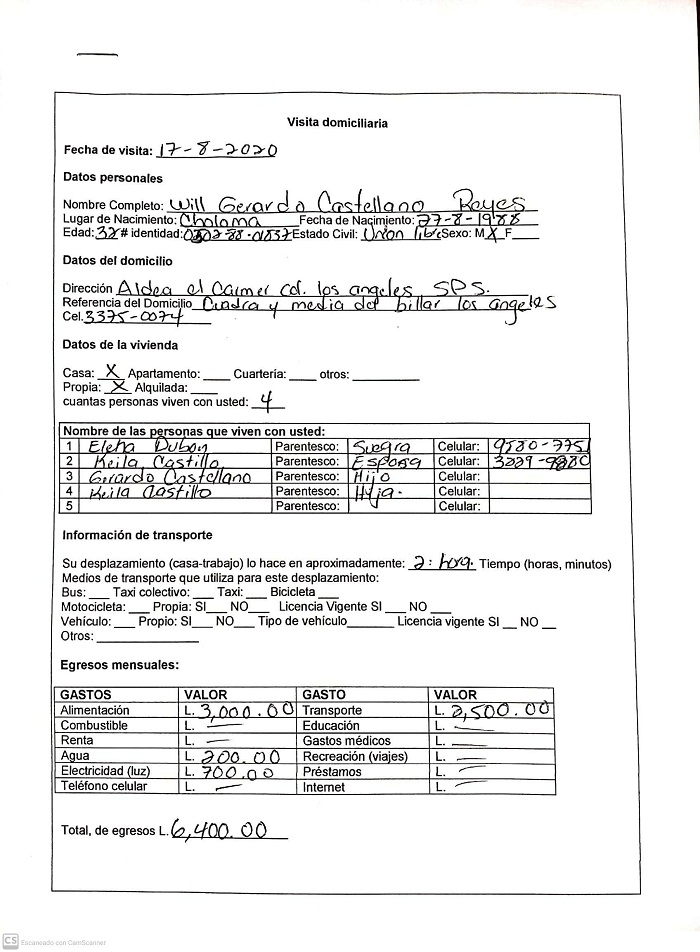 Visita domiciliaria
Fecha de visita: 17-8-2020
Datos personales
Nombre Completo: Will Gerardo Castellano Reyes
Lugar de Nacimiento: Choloma Fecha de Nacimiento: 27-8-1988
Edad: 32 # identidad: Estado Civil: Union libre Sexo: M X F
Datos del domicilio
Dirección Aldea el Carmen col. los angeles SPS.
Referencia del Domicilio Cuadra y media del billar los angeles
Cel. 3375-0074
Datos de la vivienda
Casa: X Apartamento: ___ Cuartería: ___ otros: ___
Propia: X Alquilada: ___
cuantas personas viven con usted: 4
Nombre de las personas que viven con usted:
1 Elena Dubon Parentesco: Suegra Celular: 9580-7751
2 Keila Castillo Parentesco: Esposa Celular:
3 Gerardo Castellano Parentesco: Hijo Celular:
4 Keila Castillo Parentesco: Hija. Celular:
5 Parentesco: Celular:
Información de transporte
Su desplazamiento (casa-trabajo) lo hace en aproximadamente: 2: hora. Tiempo (horas, minutos)
Medios de transporte que utiliza para este desplazamiento:
Bus: ___ Taxi colectivo: ___ Taxi: ___ Bicicleta ___
Motocicleta: ___ Propia: SI___ NO___ Licencia Vigente SI ___ NO ___
Vehículo: ___ Propio: SI___ NO___ Tipo de vehículo_______ Licencia vigente SI __ NO __
Otros: _______________
Egresos mensuales:
GASTOS VALOR GASTO VALOR
Alimentación L. 3,000.00 Transporte L. 2,500.00
Combustible L. — Educación L. —
Renta L. — Gastos médicos L. —
Agua L. 200.00 Recreación (viajes) L. —
Electricidad (luz) L. 700.00 Préstamos L. —
Teléfono celular L. — Internet L. —
Total, de egresos L. 6,400.00
CS Escaneado con CamScanner